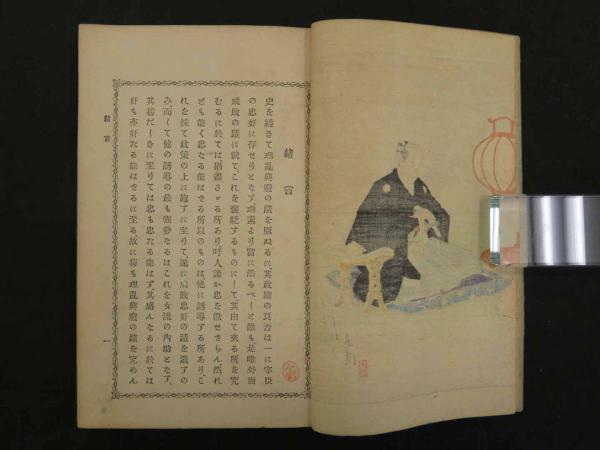 緒言
史を繙きて理亂興廢の蹟を原ぬるに其政績の良否は一に宰臣
の忠奸に存せりとなす、理露より冐に然るべしと雖も是唯外面
成敗の蹟に就てこれを褒貶するものにして、其由て來る所を究
むるに於ては猶盡さゞる所あり、呼人誰か忠を欲せざらん、然れ
ども能く忠なる能はざる所以のものは、他に誘導する所あり、こ
れを採て政策の上に施すに至りて、遂に成敗忠奸の蹟を遺すの
み、而して他の誘導の最も强勢なるはこれを女流の內助となす、
其甚だしきに至りては忠も忠たる能はず、其盛んなるに於ては
奸も亦奸たる能はざるに至る、故に苟も理亂興廢の蹟を究めん
緒言
一